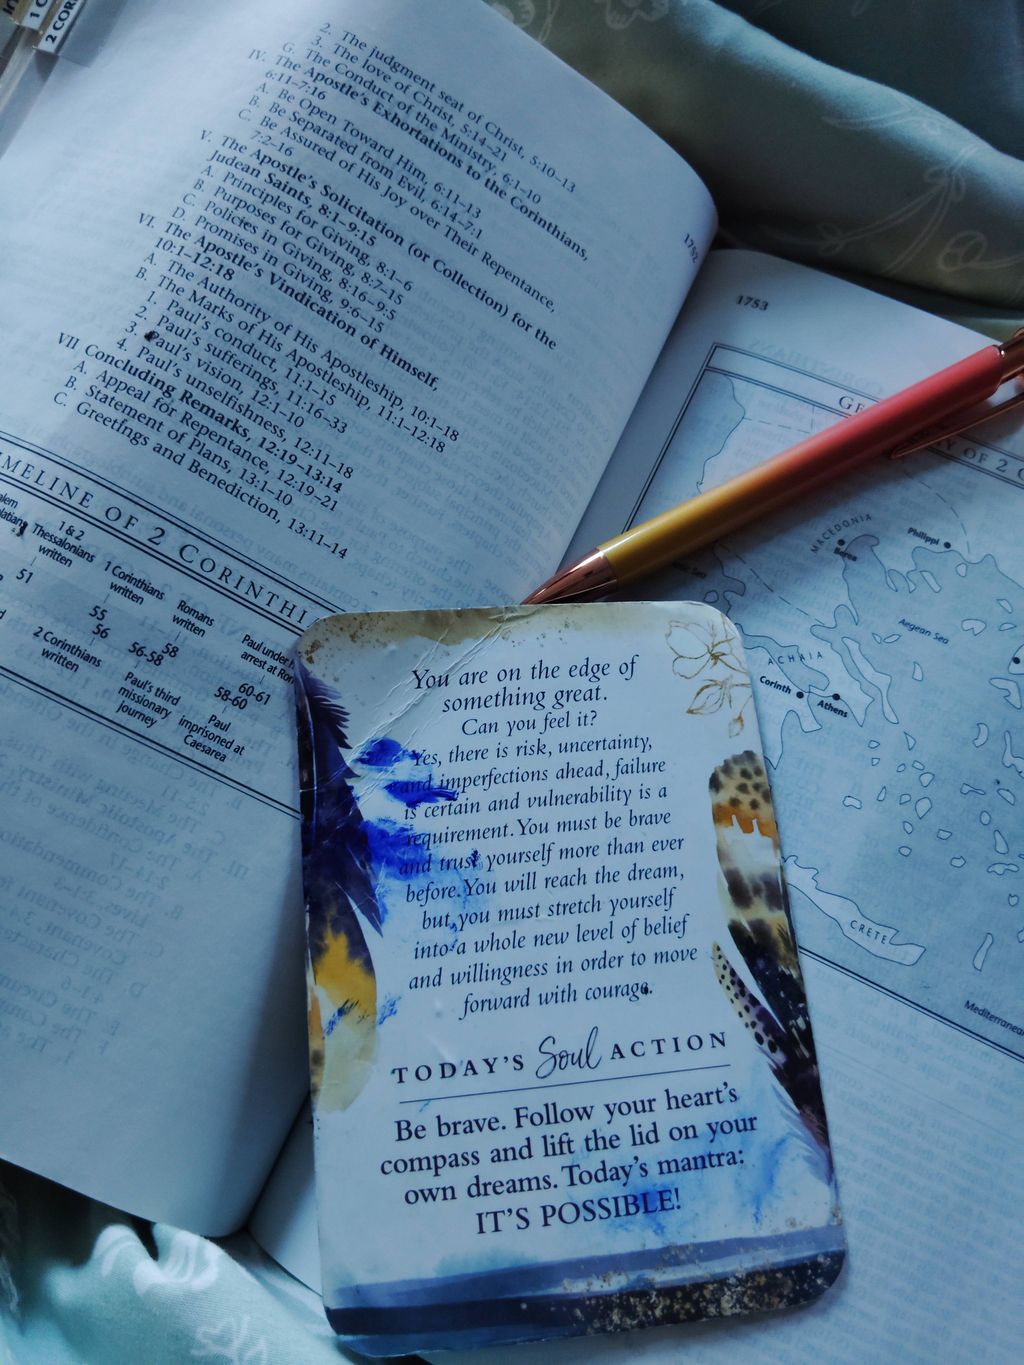 2 COR
2. The judgment seat of Christ, 5:10–13
3. The love of Christ, 5:14–21
G. The Conduct of the Ministry, 6:1–10
IV. The Apostle's Exhortations to the Corinthians,
6:11–7:16
A. Be Open Toward Him, 6:11–13
B. Be Separated from Evil, 6:14–7:1
C. Be Assured of His Joy over Their Repentance,
7:2–16
V. The Apostle's Solicitation (or Collection) for the
Judean Saints, 8:1–9:15
A. Principles for Giving, 8:1–6
B. Purposes for Giving, 8:7–15
C. Policies in Giving, 8:16–9:5
D. Promises in Giving, 9:6–15
VI. The Apostle's Vindication of Himself,
10:1–12:18
A. The Authority of His Apostleship, 10:1–18
B. The Marks of His Apostleship, 11:1–12:18
1. Paul's conduct, 11:1–15
2. Paul's sufferings, 11:16–33
3. Paul's vision, 12:1–10
4. Paul's unselfishness, 12:11–18
VII. Concluding Remarks, 12:19–13:14
A. Appeal for Repentance, 12:19–21
B. Statement of Plans, 13:1–10
C. Greetings and Benediction, 13:11–14
1752
TIMELINE OF 2 CORINTHI
1 & 2
Thessalonians
written
51
1 Corinthians
written
55
56
2 Corinthians
written
Romans
written
58
56-58
Paul's third
missionary
journey
Paul under
arrest at Rom
60-61
58-60
Paul
imprisoned at
Caesarea
1753
GE
Y OF 2 C
MACEDONIA
Berea
Philippi
Aegean Sea
ACHAIA
Corinth
Athens
CRETE
Mediterranean
You are on the edge of
something great.
Can you feel it?
Yes, there is risk, uncertainty,
and imperfections ahead, failure
is certain and vulnerability is a
requirement. You must be brave
and trust yourself more than ever
before. You will reach the dream,
but you must stretch yourself
into a whole new level of belief
and willingness in order to move
forward with courage.
TODAY'S Soul ACTION
Be brave. Follow your heart's
compass and lift the lid on your
own dreams. Today's mantra:
IT'S POSSIBLE!